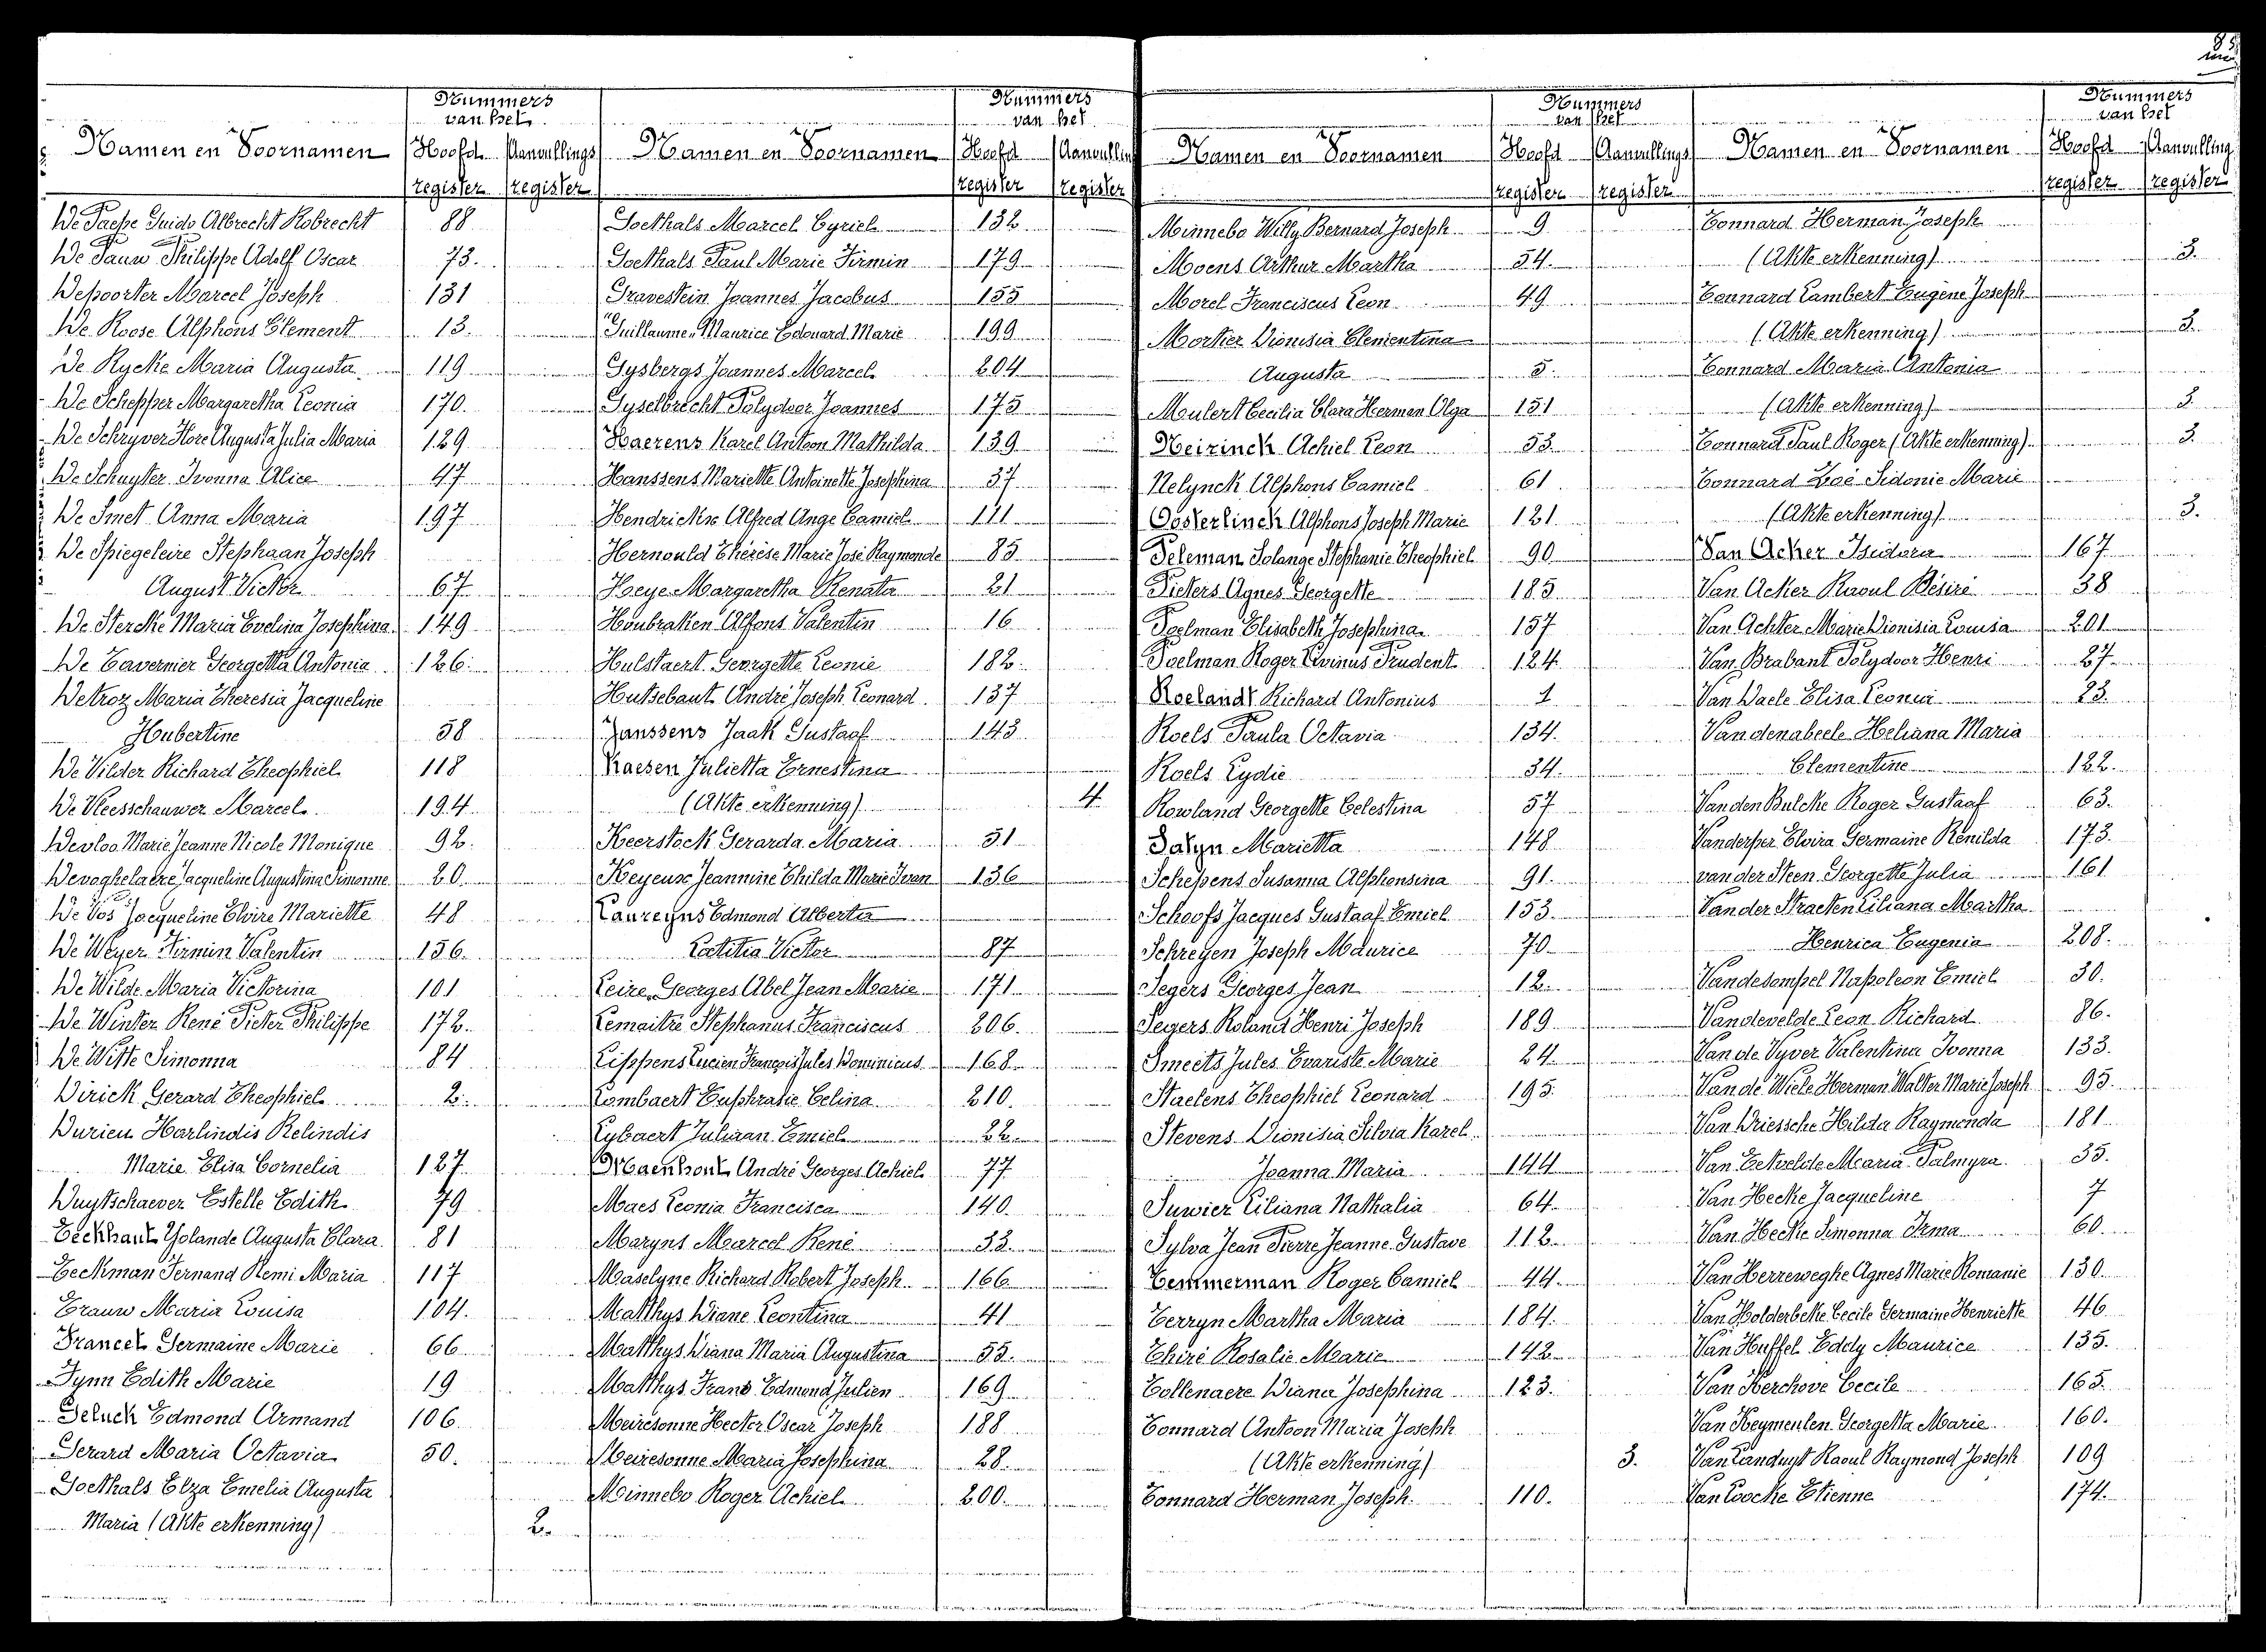 Nummers
van het
Namen en Voornamen Hoofd Aanvullings
register register
De Paepe Guido Albrecht Robrecht 88
De Pauw Philippe Adolf Oscar 73.
Depoorter Marcel Joseph 131
De Roose Alphons Clement 13.
De Rycke Maria Augusta 119
De Schepper Margaretha Leonia 170.
De Schryver Hore Augusta Julia Maria 129
De Schuyter Ivonna Alice 47
De Smet Anna Maria 197
De Spiegeleire Stephaan Joseph
August Victor 67
De Stercke Maria Evelina Josephina 149
De Tavernier Georgetta Antonia 126.
Detroz Maria Theresia Jacqueline
Hubertine 58
De Vilder Richard Theophiel 118
De Vleesschauwer Marcel 194
Devloo Marie Jeanne Nicole Monique 92.
Devoghelaere Jacqueline Augustina Simonne 20.
De Vos Jacqueline Elvire Mariette 48
De Weyer Firmin Valentin 156.
De Wilde Maria Victorina 101
De Winter René Pieter Philippe 172.
De Witte Simonna 84
Dirick Gerard Theophiel 2.
Durieu Harlindis Relindis
Marie Elisa Cornelia 127
Duytschaever Estelle Edith 79
Eeckhaut Yolande Augusta Clara 81
Eeckman Fernand Remi Maria 117
Erauw Maria Louisa 104.
Francet Germaine Marie 66
Fynn Edith Marie 19
Geluck Edmond Armand 106
Gerard Maria Octavia 50.
Goethals Elza Emelia Augusta
Maria (Akte erkenning) 2.
Nummers
van het
Namen en Voornamen Hoofd
register register
Goethals Marcel Cyriel 132
Goethals Paul Marie Firmin 179
Gravestein Joannes Jacobus 155
Guillaume Maurice Edouard Marie 199
Gysbergs Joannes Marcel 204
Gyselbrecht Polydoor Joannes 175
Haerens Karel Antoon Mathilda 139
Hanssens Mariette Antoinette Josephina 37
Hendrickx Alfred Ange Camiel 111
Hernould Thérèse Marie José Raymonde 85
Heye Margaretha Renata 21
Houbraken Alfons Valentin 16
Hulstaert Georgette Leonie 182.
Hutsebaut André Joseph Leonard 137
Janssens Jaak Gustaaf 143
Kaesen Julietta Ernestina
(Akte erkenning) 4
Keerstock Gerarda Maria 51
Keyeux Jeannine Thilda Marie Ivan 136
Laureyns Edmond Alberta
Laetitia Victor 87
Leire Georges Abel Jean Marie 171
Lemaitre Stephanus Franciscus 206.
Lippens Lucien François Jules Dominicus 168
Lombaert Euphrasie Celina 210.
Lybaert Juliaan Emiel 22.
Maenhout André Georges Achiel 77
Maes Leonia Francisca 140.
Maryns Marcel René 32.
Maselyne Richard Robert Joseph 166
Matthys Diane Leontina 41
Matthys Diana Maria Augustina 55.
Matthys Frans Edmond Julien 169
Meiresonne Hector Oscar Joseph 188
Meiresonne Maria Josephina 28.
Minnebo Roger Achiel 200.
Nummers
van het
Namen en Voornamen Hoofd Aanvullings
register register
Minnebo Willy Bernard Joseph 9
Moens Arthur Martha 54.
Morel Franciscus Leon 49
Mortier Dionisia Clementina
Augusta 5.
Moulert Cecilia Clara Herman Olga 151
Neirinck Achiel Leon 53.
Nelynck Alphons Camiel 61
Oosterlinck Alphons Joseph Marie 121.
Peleman Solange Stephanie Theophiel 90
Pieters Agnes Georgette 185
Poelman Elisabeth Josephina 157
Poelman Roger Livinus Prudent 124.
Roelandt Richard Antonius 1
Roels Paula Octavia 134.
Roels Lydie 34.
Rowland Georgette Celestina 57
Salyn Marietta 148
Schepens Susanna Alphonsina 91.
Schoofs Jacques Gustaaf Emiel 153.
Schreyen Joseph Maurice 70
Segers Georges Jean 12.
Segers Roland Henri Joseph 189
Smeets Jules Evariste Marie 24.
Staelens Theophiel Leonard 195.
Stevens Dionisia Silvia Karel
Joanna Maria 144
Suwier Liliana Nathalia 64
Sylva Jean Pierre Jeanne Gustave 112.
Temmerman Roger Camiel 44.
Terryn Martha Maria 184.
Thiré Rosalie Marie 142
Tollenaere Diana Josephina 123.
Tonnard Antoon Maria Joseph
(Akte erkenning) 3.
Tonnard Herman Joseph 110.
Nummers
van het
Namen en Voornamen Hoofd Aanvulling
register register
Tonnard Herman Joseph
(Akte erkenning) 3.
Tonnard Lambert Eugène Joseph
(Akte erkenning) 3.
Tonnard Maria Antonia
(Akte erkenning) 3
Tonnard Paul Roger (Akte erkenning) 3.
Tonnard Zoé Sidonie Marie
(Akte erkenning) 3.
Van Acker Isidora 167
Van Acker Raoul Désiré 38
Van Achter Marie Dionisia Louisa 201
Van Brabant Polydoor Henri 27
Van Daele Elisa Leonia 23.
Vandenabeele Heliana Maria
Clementine 122.
Van den Bulcke Roger Gustaaf 63.
Vanderper Elvira Germaine Renilda 173.
van der Steen Georgette Julia 161
Van der Straeten Liliana Martha
Henrica Eugenia 208.
Vandesompel Napoleon Emiel 30.
Vandevelde Leon Richard 86.
Van de Vyver Valentina Ivonna 133.
Van de Wiele Herman Walter Marie Joseph 95.
Van Driessche Hilda Raymonda 181
Van Eetvelde Maria Palmyra 35.
Van Hecke Jacqueline 7
Van Hecke Simonna Irma 60.
Van Herreweghe Agnes Marie Romanie 130.
Van Holderbeke Cecile Germaine Henriette 46
Van Huffel Eddy Maurice 135.
Van Kerchove Cecile 165.
Van Keymeulen Georgetta Marie 160.
Van Landuyt Raoul Raymond Joseph 109
Van Loocke Etienne 174.